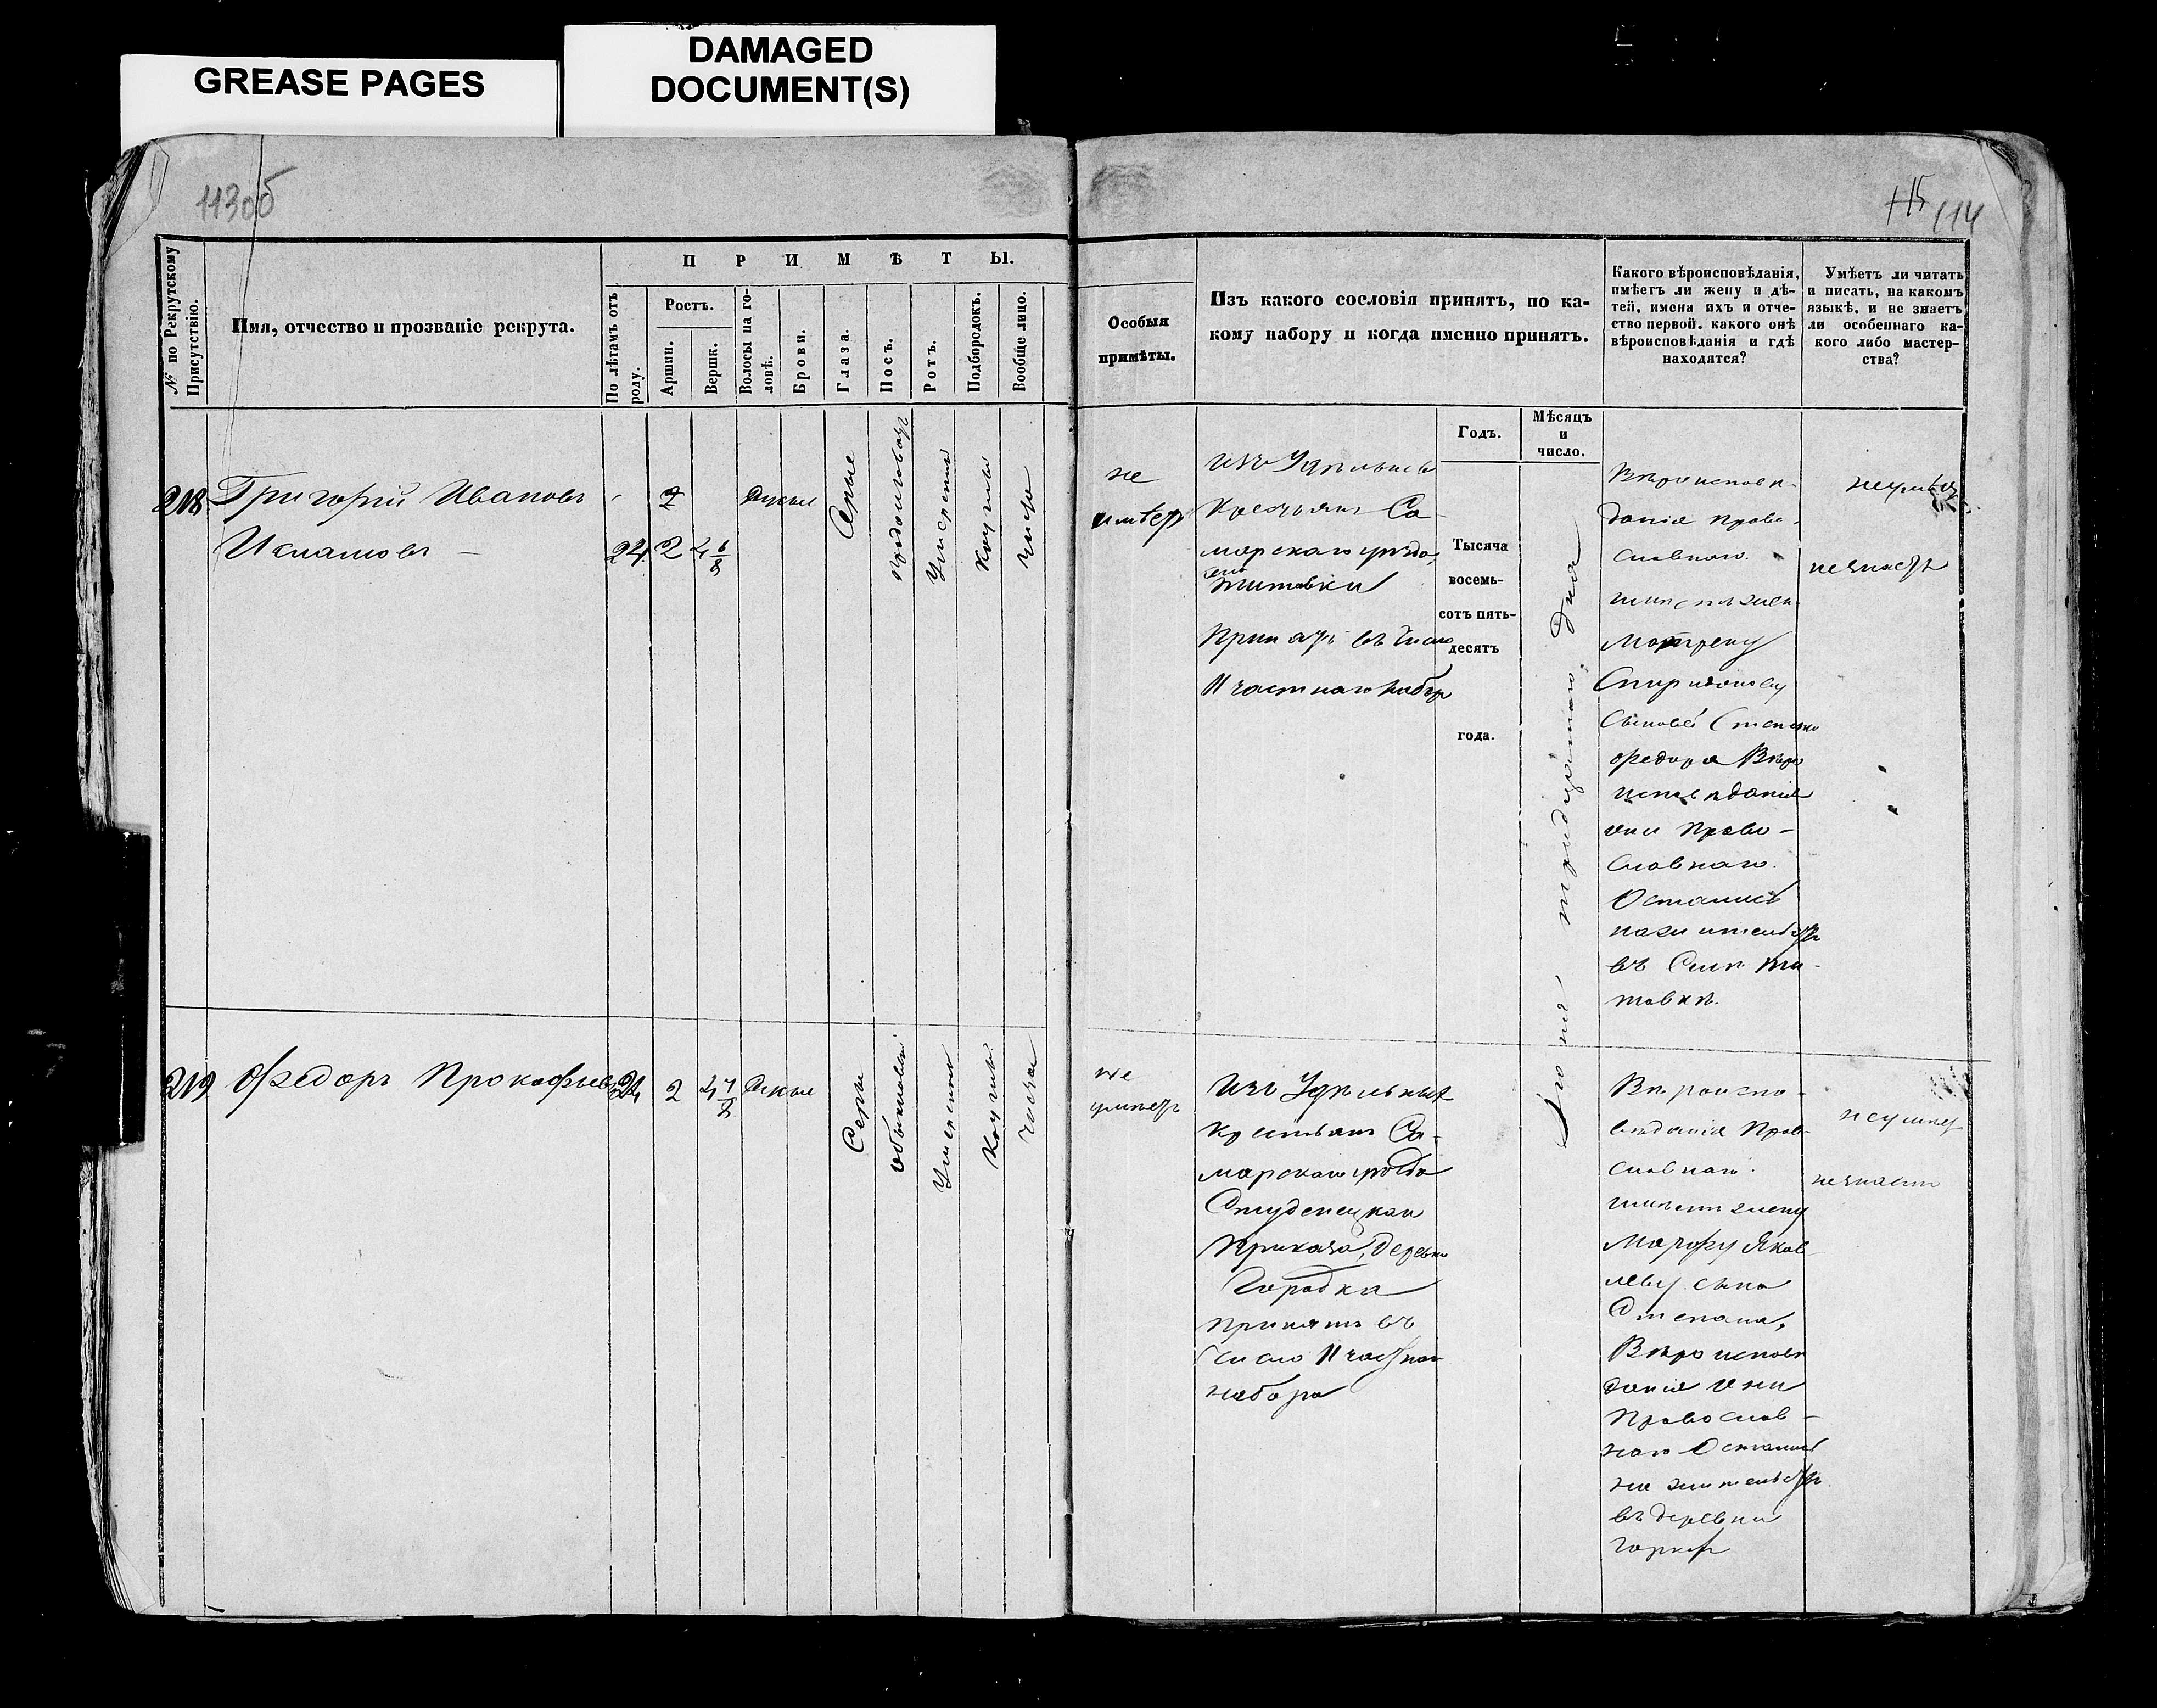 GREASE PAGES
DAMAGED
DOCUMENT(S)
113об
115 114
№ по Рекрутскому Присутствію.
Имя, отчество и прозваніе рекрута.
П Р И М Ѣ Т Ы.
По лѣтамъ отъ роду.
Ростъ.
Аршин.
Вершк.
Волосы на головѣ.
Брови.
Глаза.
Носъ.
Ротъ.
Подбородокъ.
Вообще лицо.
Особыя
примѣты.
Изъ какого сословія принятъ, по ка-
кому набору и когда именно принятъ.
Какого вѣроисповѣданія,
имѣетъ ли жену и дѣ-
тей, имена ихъ и отче-
ство первой, какого онѣ
вѣроисповѣданія и гдѣ
находятся?
Умѣетъ ли читать
и писать, на какомъ
языкѣ, и не знаетъ
ли особеннаго ка-
кого либо мастер-
ства?
Годъ.
Мѣсяцъ
и
число.
218 Григорій Ивановъ
24 2 4 6/8
русые
Сѣрые
Продолговатъ
Умѣренный
Круглый
Чисто
не
имѣетъ
изъ Удѣльныхъ
Крестьянъ Са-
марскаго уѣзда,
село
Титовки
Принятъ въ число
11 частнаго набора
Тысяча
восемь-
сотъ пять-
десятъ
года.
тридцатаго дня
Вѣроисповѣ-
данія Право-
славнаго.
имѣетъ жену
Матрену
Спиридонову
Сыновей Степана
Федора Вѣро
исповѣданія
они Право-
славнаго.
Остались
на жительствѣ
въ Селѣ Ти-
товкѣ.
неумѣетъ
незнаетъ
219 Федоръ Прокофьевъ
24 2 4 7/8 русые
Серы
обыкновен
Умеренный
Круглый
чисто
не
имѣетъ
Изъ Удѣльныхъ
Крестьянъ Са-
марскаго уѣзда
Студенецкаго
Приказа, деревни
Городка
принятъ въ
Число 11 частнаго
набора
Вѣроиспо-
вѣданія Право-
славнаго.
имѣетъ жену
Марфу Яков-
леву сына
Степана,
Вѣроисповѣ
данія они
Православ-
наго Остались
на жительствѣ
въ деревни
неумѣетъ
незнаетъ